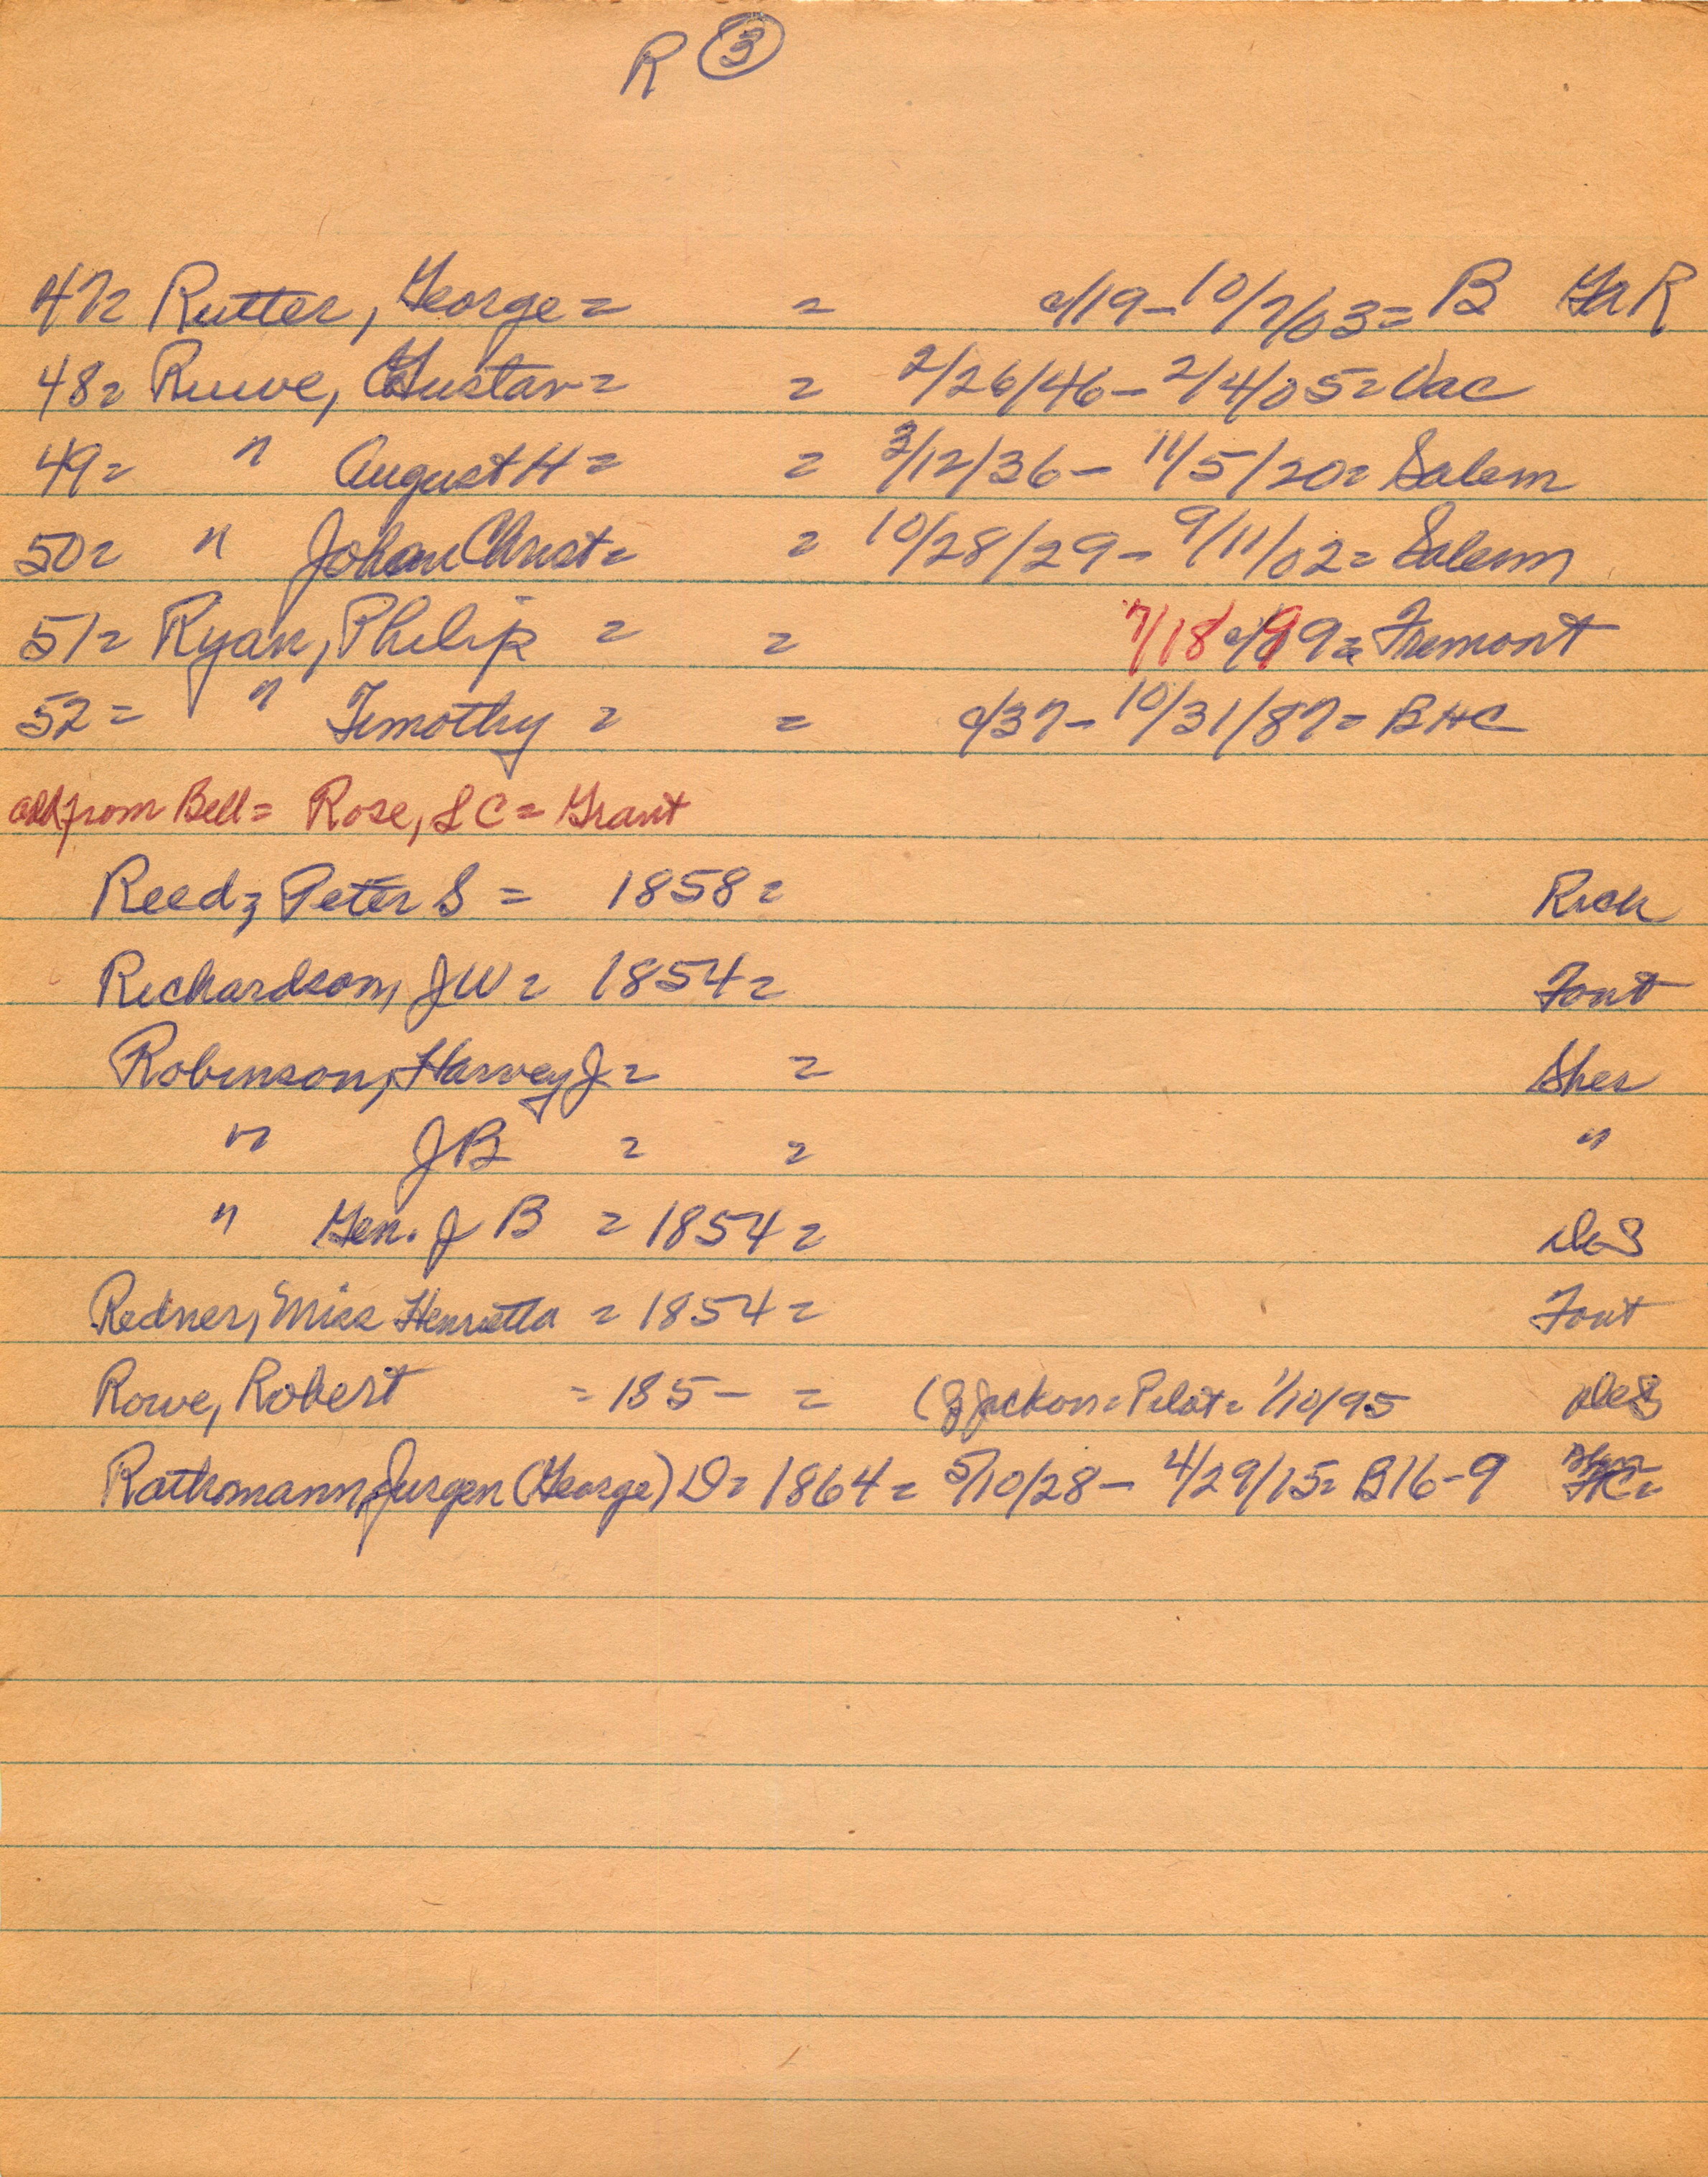 R ③
47= Rutter, George = = c/19-10/7/03= B GAR
48= Ruwe, Gustav= = 2/26/46-2/4/05= Vac
49= " August H = = 3/12/36- 11/5/20= Salem
50= " Johan Christ= = 10/28/29- 9/11/02= Salem
51= Ryan, Philip = = 7/18 9= Fremont
52= " Timothy = = c/37- 10/31/87= BHC
add from Bell= Rose, L C= Grant
Reed, Peter S = 1858= Rich
Richardson, JW= 1854= Font
Robinson, Harvey J= = Sher
" JB = = "
" Gen. J B = 1854= DeS
Redner, Miss Henrietta = 1854= Font
Rowe, Robert = 185- = Pilot= 1/10/95 DeS
Rathsmann, Jurgen (George) D= 1864= 5/10/28- 4/29/15= B16-9